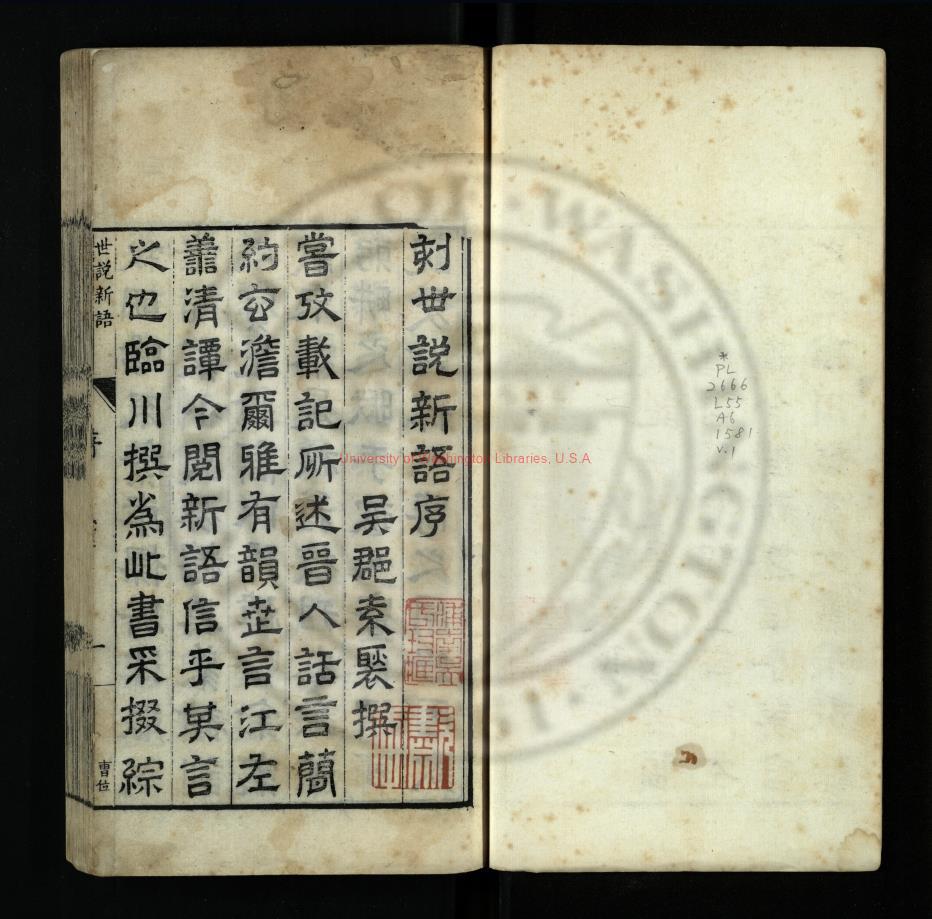 刻世說新語序
吳郡袁褧撰
嘗攷載記所述晉人話言簡
約玄澹爾雅有韻世言江左
善清譚今閱新語信乎其言
之也臨川撰為此書采掇綜
世說新語
序
一
University of Washington Libraries, U.S.A
WASHINGTON
*
PL
2666
L55
A6
1581
v.1